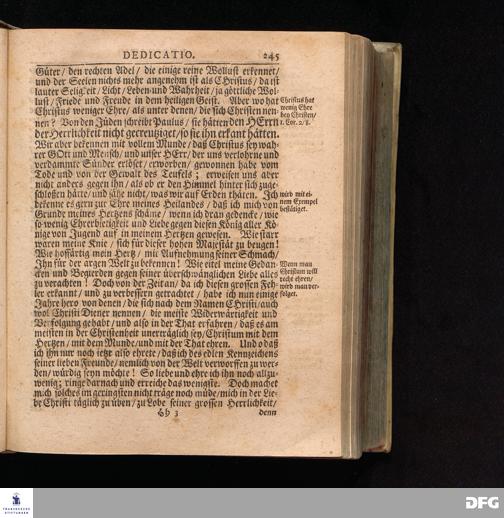 DEDICATIO. 245
Güter/ den rechten Adel/ die einige reine Wollust erkennet/
und der Seelen nichts mehr angenehm ist als CHristus/ da ist
lauter Seligkeit/ Licht/ Leben und Wahrheit/ ja göttliche Wol-
lust/ Friede und Freude in dem heiligen Geist. Aber wo hat
Christus weniger Ehre/ als unter denen/ die sich Christen nen-
nen? Von den Jüden schreibt Paulus/ sie hätten den HErrn
der Herrlichkeit nicht gecreutziget/ so sie ihn erkant hätten.
Wir aber bekennen mit vollem Munde/ daß Christus sey wah-
rer GOtt und Mensch/ und unser HErr/ der uns verlohrne und
verdammte Sünder erlöset/ erworben/ gewonnen habe vom
Tode und von der Gewalt des Teufels; erweisen uns aber
nicht anders gegen ihn/ als ob er den Himmel hinter sich zuge-
schloßen hätte/ und sähe nicht/ was wir auf Erden thäten. Ich
bekenne es gern zur Ehre meines Heilandes/ daß ich mich von
Grunde meines Hertzens schäme/ wenn ich dran gedencke/ wie
so wenig Ehrerbietigkeit und Liebe gegen diesen König aller Kö-
nige von Jugend auf in meinem Hertzen gewesen. Wie starr
waren meine Knie/ sich für dieser hohen Majestät zu beugen!
Wie hoffärtig mein Hertz/ mit Aufnehmung seiner Schmach/
Ihn für der argen Welt zu bekennen! Wie eitel meine Gedan-
cken und Begierden gegen seiner überschwänglichen Liebe alles
zu verachten! Doch von der Zeit an/ da ich diesen grossen Feh-
ler erkannt/ und zu verbessern getrachtet/ habe ich nun einige
Jahre hero von denen/ die sich nach dem Namen CHristi/ auch
wol Christi Diener nennen/ die meiste Widerwärtigkeit und
Verfolgung gehabt/ und also in der That erfahren/ daß es am
meisten in der Christenheit unerträglich sey/ Christum mit dem
Hertzen/ mit dem Munde/ und mit der That ehren. Und o daß
ich ihn nur noch ietzt also ehrete/ daß ich des edlen Kennzeichens
seiner lieben Freunde/ nemlich von der Welt verworffen zu wer-
den/ würdig seyn möchte! So liebe und ehre ich ihn noch allzu-
wenig; ringe darnach und erreiche das wenigste. Doch machet
mich solches im geringsten nicht träge noch müde/ mich in der Lie-
be Christi täglich zu üben/ zu Lobe seiner grossen Herrlichkeit/
Hh 3 denn
Christus hat
wenig Ehre
bey Christen/
1. Cor. 2/8.
wird mit ei-
nem Exempel
bestätiget.
Wenn man
Christum will
recht ehren/
wird man ver-
folget.
FRANCKESCHE
STIFTUNGEN
DFG